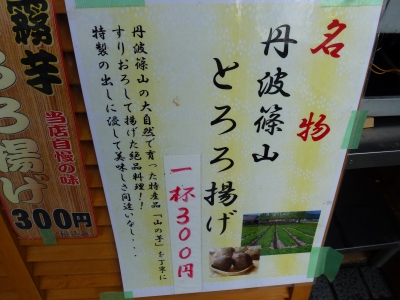 名物
丹波篠山
とろろ揚げ
丹波篠山の大自然で育った特産品「山の芋」を丁寧に
すりおろして揚げた絶品料理！！
特製の出しに浸して美味しさ間違いなし・・・
一杯３００円
霧芋
ろろ揚げ
当店自慢の味
300円